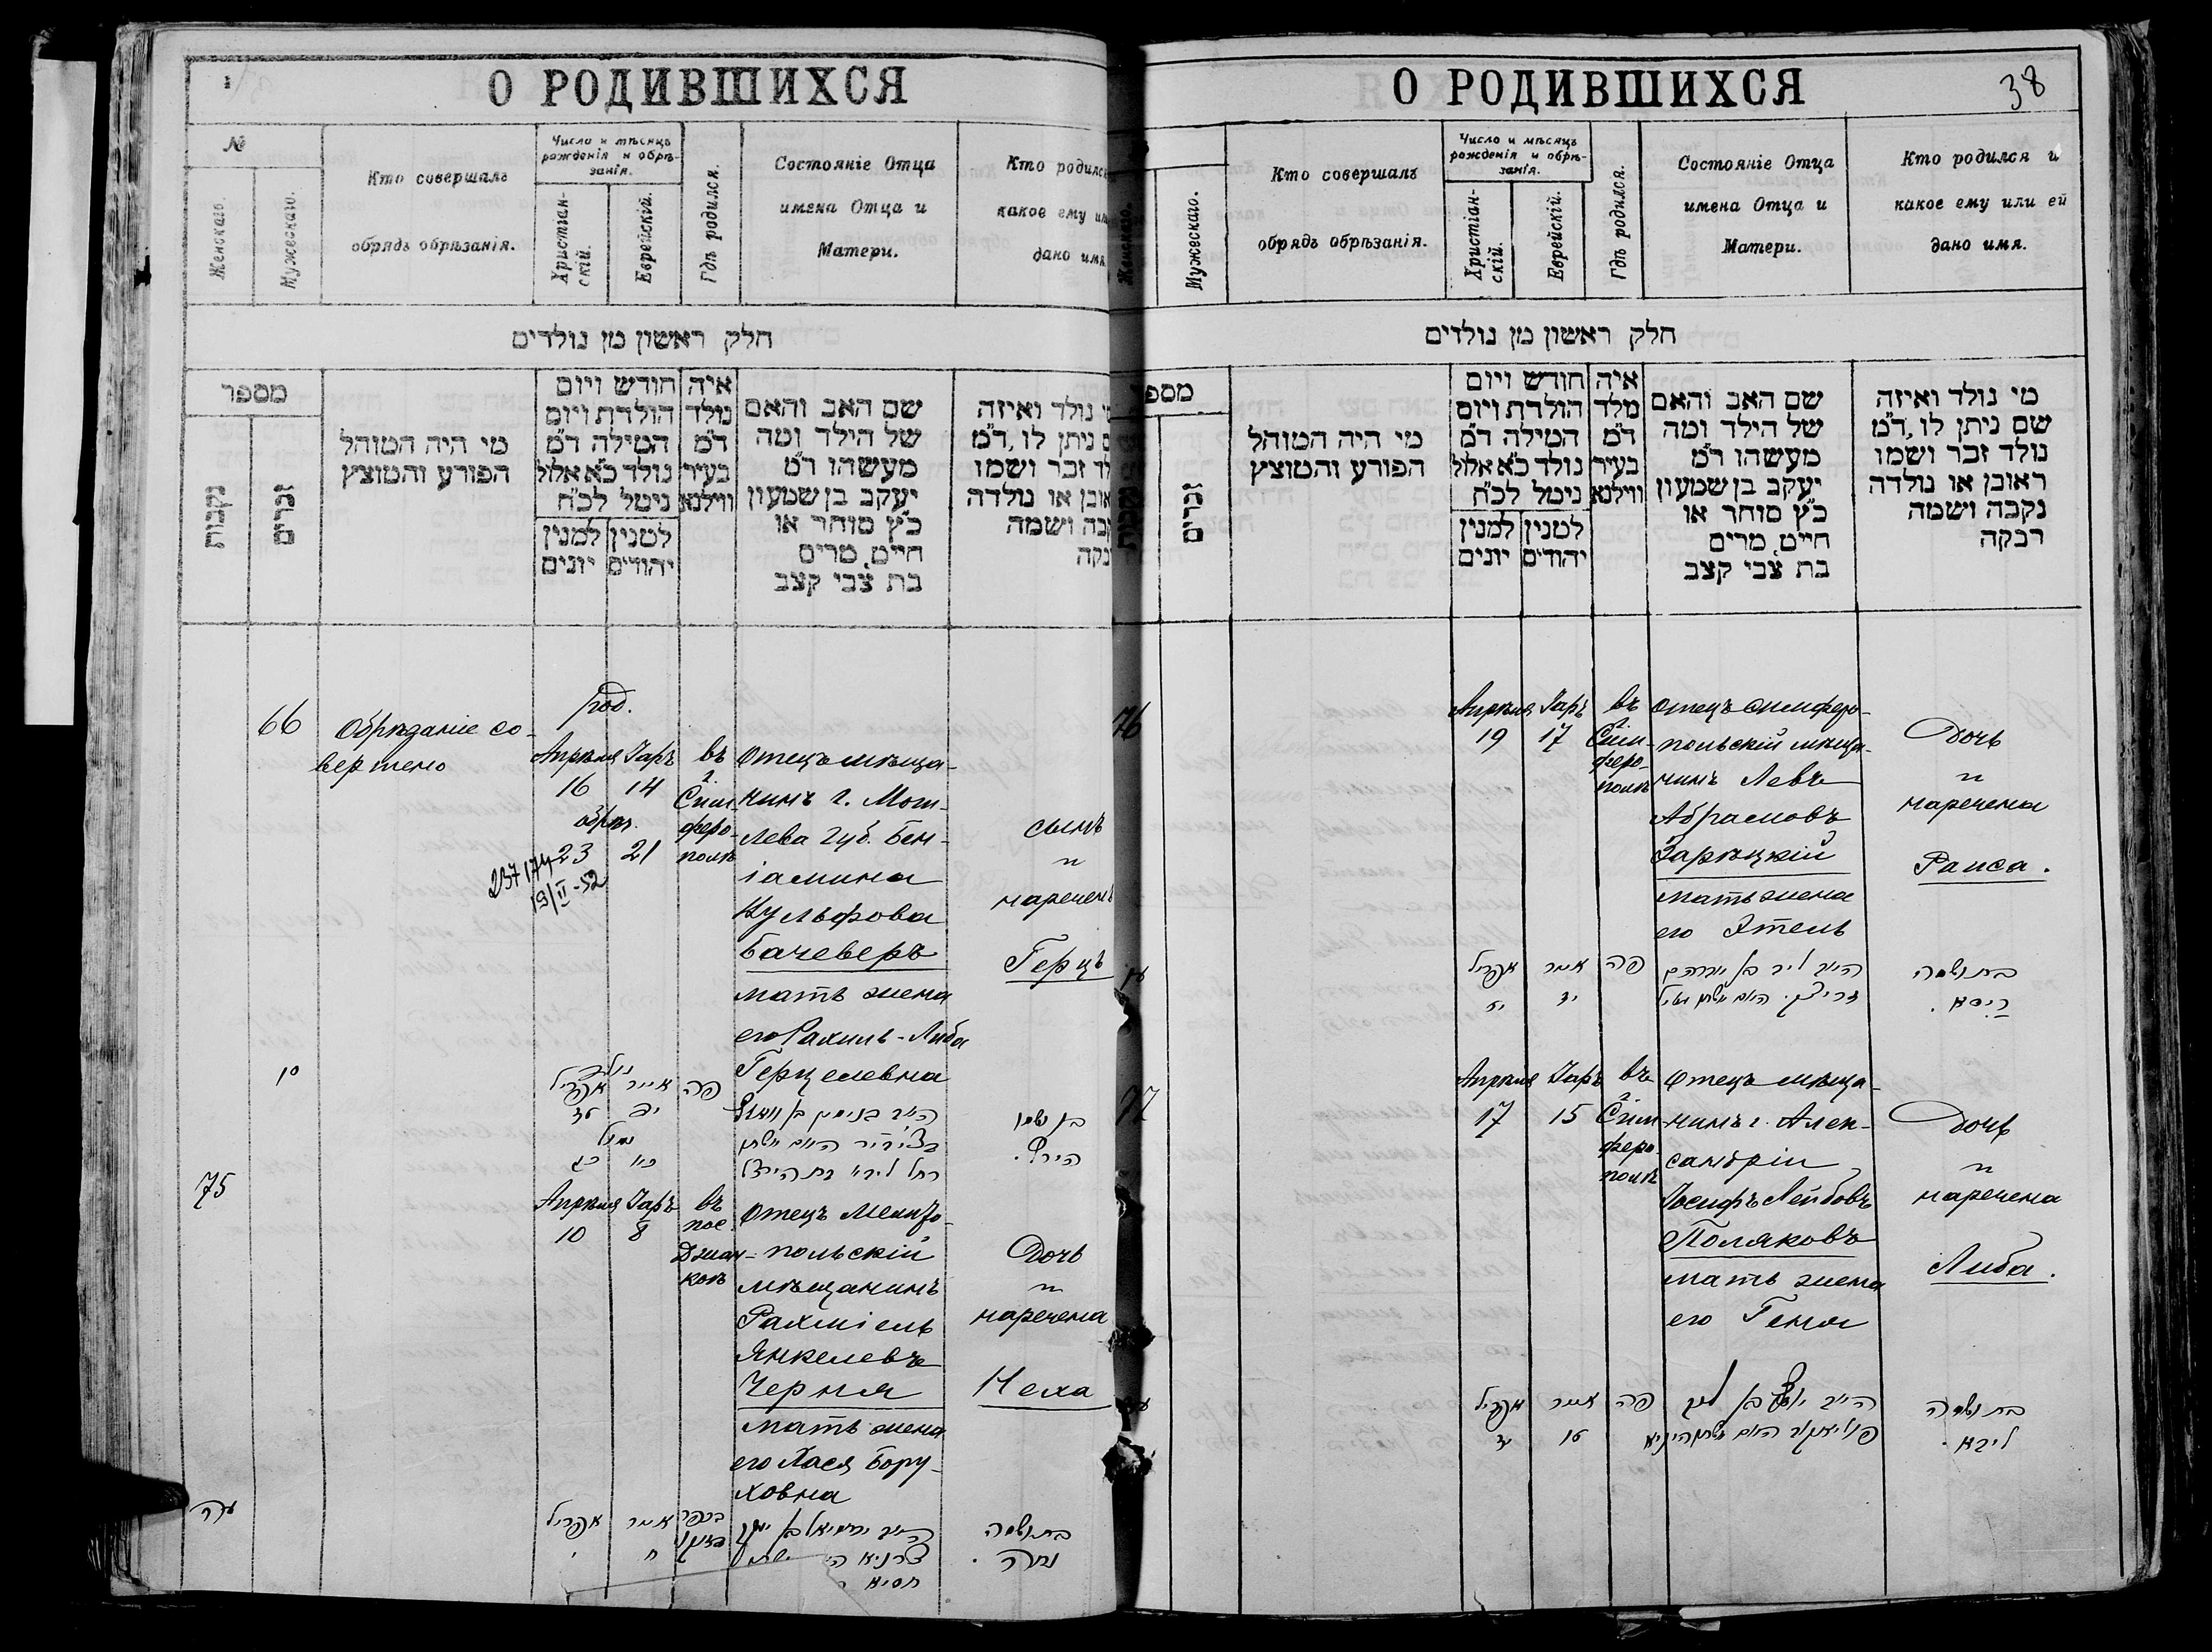 О РОДИВШИХСЯ
№
Женскаго.
Мужескаго.
Кто совершалъ
обрядъ обрѣзанія.
Число и мѣсяцъ
рожденія и обрѣ-
занія.
Христіан-
скій.
Еврейскій.
Гдѣ родился.
Состояніе Отца
имена Отца и
Матери.
Кто родился
какое ему
дано имя
חלק ראשון מן נולדים
מספר
נקבות
זכרים
מי היה המוהל
הפורע והמוצץ
חודש ויום
הולדת ויום
המילה ד״מ
נולד כ״א אלול
נימל לכ״ח
למנין
יהודים
למנין
יונים
איה
נולד
ד״מ
בעיר
ווילנא
שם האב והאם
של הילד ומה
מעשהו ד״מ
יעקב בן שמעון
כ״ץ סוחר או
חייט, מרים
בת צבי קצב
נולד ואיזה
ניתן לו, ד״מ
זכר ושמו
או נולדה
ושמה
66
Обрѣзаніе со-
вершено
род.
Апрѣля Іаръ
16 14
обрѣз.
23 21
237174
19/II-52
въ
г.
Сим-
феро-
полѣ
Отецъ мѣща-
нинъ г. Моги-
лева губ. Бен-
іамина
Вульфова
Бачеверъ
мать жена
его Рахиль-Либа
Герцелевна
сынъ
и
нареченъ
Герцъ
אפריל אייר פה
בן ושמו
75
Апрѣля Іаръ
10 8
въ
пос.
Джан-
коѣ
Отецъ Мелито-
польскій
мѣщанинъ
Рахміель
Янкелевъ
Черня
мать жена
его Хася Бору-
ховна
Дочь
и
наречена
Неха
עה
אפריל אייר
י ח
בת ושמה
נחה.
О РОДИВШИХСЯ
38
Женскаго.
Мужескаго.
Кто совершалъ
обрядъ обрѣзанія.
Число и мѣсяцъ
рожденія и обрѣ-
занія.
Христіан-
скій.
Еврейскій.
Гдѣ родился.
Состояніе Отца
имена Отца и
Матери.
Кто родился и
какое ему или ей
дано имя.
חלק ראשון מן נולדים
זכרים
מי היה המוהל
הפורע והמוצץ
חודש ויום
הולדת ויום
המילה ד״מ
נולד כ״א אלול
נימל לכ״ח
למנין
יהודים
למנין
יונים
איה
נולד
ד״מ
בעיר
ווילנא
שם האב והאם
של הילד ומה
מעשהו ד״מ
יעקב בן שמעון
כ״ץ סוחר או
חייט, מרים
בת צבי קצב
מי נולד ואיזה
שם ניתן לו, ד״מ
נולד זכר ושמו
ראובן או נולדה
נקבה ושמה
רבקה
76
Апрѣля Іаръ
19 17
въ
г.
Сим-
феро-
полѣ
Отецъ симферо-
польскій мѣща-
нинъ Левъ
Абрамовъ
Зарѣцкій
мать жена
его Этель
Дочь
и
наречена
Раиса.
אפריל אייר פה
בת ושמה
ריסא.
77
Апрѣля Іаръ
17 15
въ
г.
Сим-
феро-
полѣ
Отецъ мѣща-
нинъ г. Алек-
сандріи
Іосифъ Лейбовъ
Поляковъ
мать жена
его Геня
Дочь
и
наречена
Либа.
אפריל אייר פה
בת ושמה
ליבא.